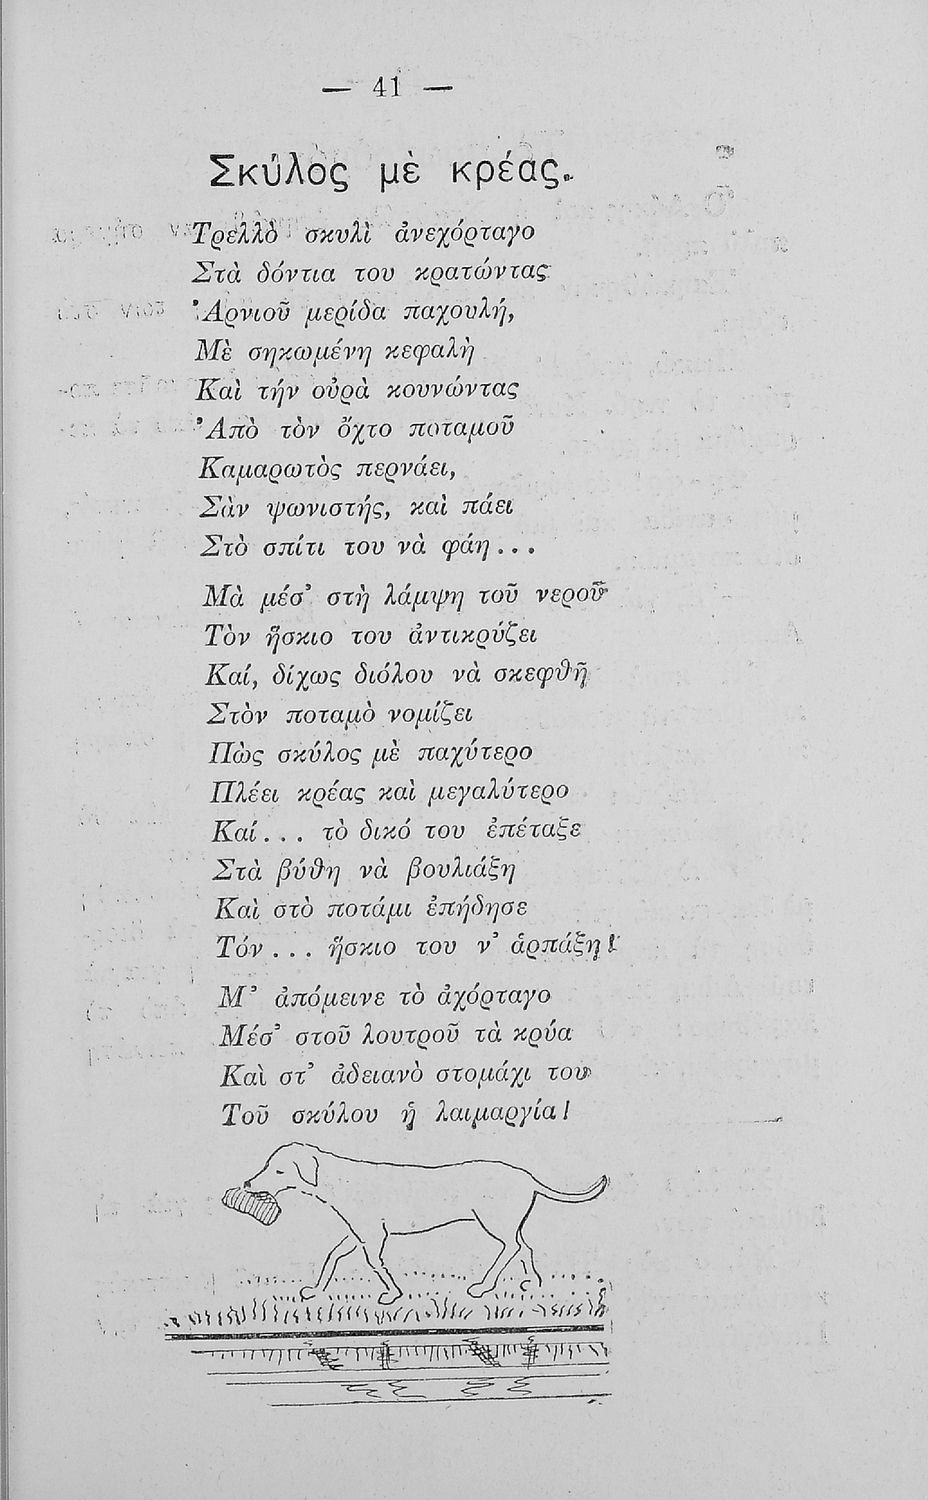 — 41 —
Σκύλος μὲ κρέας.
Τρελλὸ σκυλὶ ἀνεχόρταγο
Στὰ δόντια του κρατώντας
Ἀρνιοῦ μερίδα παχουλή,
Μὲ σηκωμένη κεφαλὴ
Καὶ τήν οὐρὰ κουνώντας
Ἀπὸ τὸν ὄχτο ποταμοῦ
Καμαρωτὸς περνάει,
Σὰν ψωνιστής, καὶ πάει
Στὸ σπίτι του νὰ φάῃ...
Μὰ μέσ' στὴ λάμψη τοῦ νεροῦ
Τὸν ἥσκιο του ἀντικρύζει
Καί, δίχως διόλου νὰ σκεφθῇ
Στὸν ποταμὸ νομίζει
Πὼς σκύλος μὲ παχύτερο
Πλέει κρέας καὶ μεγαλύτερο
Καί... τὸ δικό του ἐπέταξε
Στὰ βύθη νὰ βουλιάξῃ
Καὶ στὸ ποτάμι ἐπήδησε
Τόν... ἥσκιο του ν' ἁρπάξῃ!
Μ' ἀπόμεινε τὸ ἀχόρταγο
Μέσ' στοῦ λουτροῦ τὰ κρύα
Καὶ στ' ἀδειανὸ στομάχι του
Τοῦ σκύλου ἡ λαιμαργία!